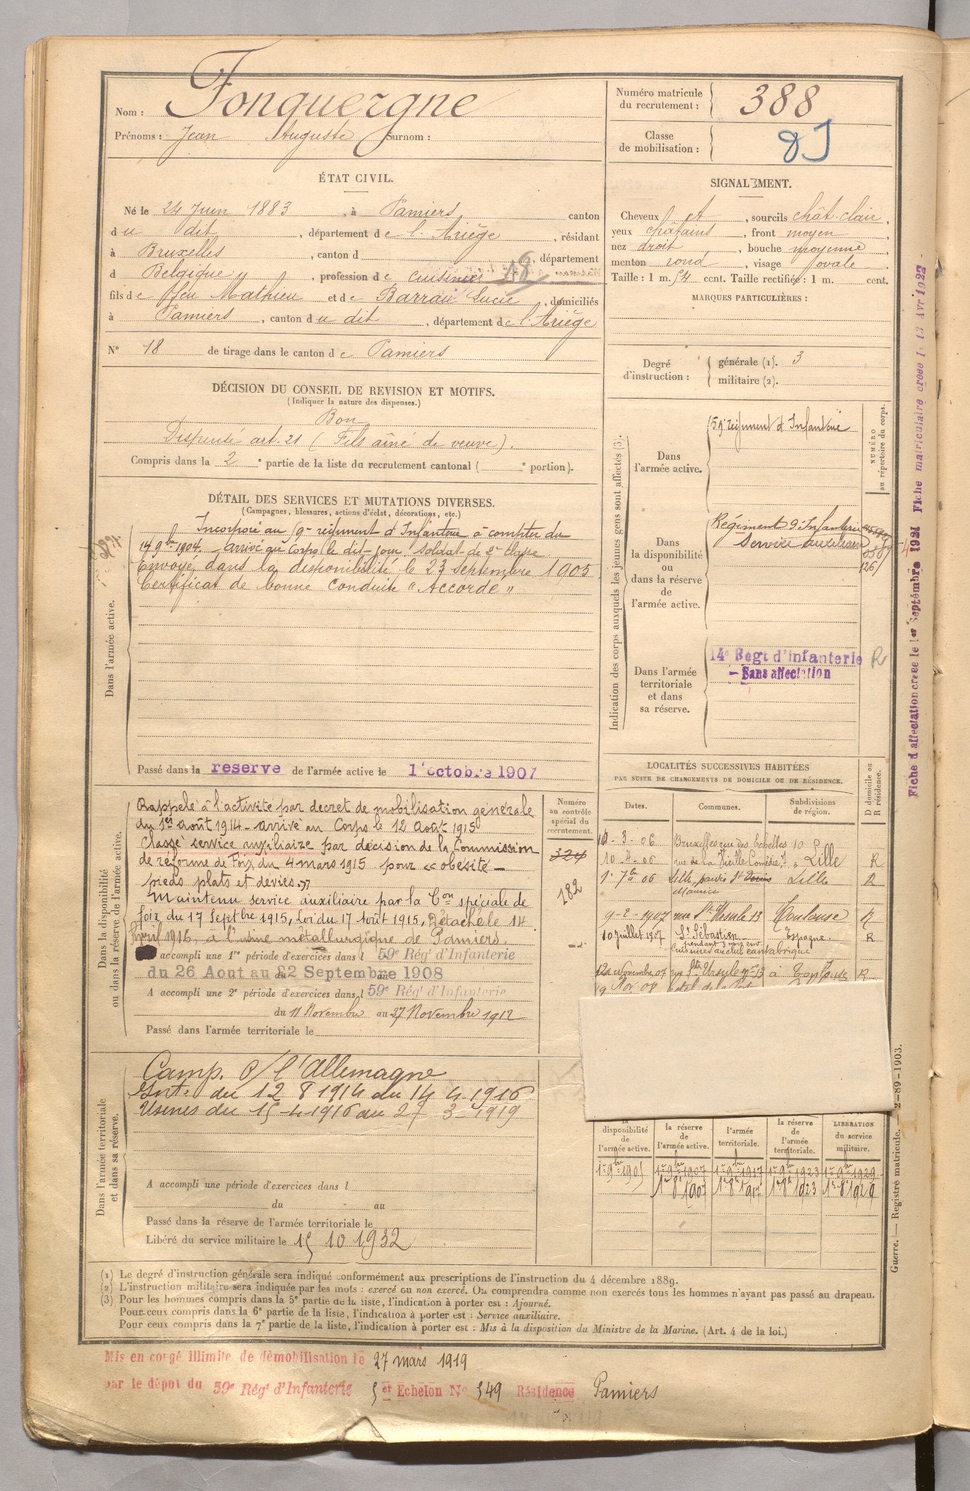 Nom : Fonquergne
Prénoms : Jean Auguste Surnom :
ÉTAT CIVIL.
Né le 24 Juin 1883, à Pamiers, canton
du dit, département de l'Ariège, résidant
à Bruxelles, canton d, département
d Belgique, profession de cuisinier
fils de feu Mathieu et de Barrau Lucie, domiciliés
à Pamiers, canton du dit, département de l'Ariège
N° 18 de tirage dans le canton de Pamiers
DÉCISION DU CONSEIL DE REVISION ET MOTIFS.
(Indiquer la nature des dispenses.)
Bon
Dispensé art. 21 (Fils aîné de veuve).
Compris dans la 2e partie de la liste du recrutement cantonal ( e portion).
DÉTAIL DES SERVICES ET MUTATIONS DIVERSES.
(Campagnes, blessures, actions d'éclat, décorations, etc.)
Dans l'armée active.
Incorporé au 59e régiment d'Infanterie à compter du
14 9bre 1904. arrivé au Corps le dit jour, soldat de 2e classe
Envoyé dans la disponibilité le 23 septembre 1905
Certificat de bonne conduite "Accordé"
Passé dans la reserve de l'armée active le 1er octobre 1907
Dans la disponibilité
ou dans la réserve de l'armée active.
Rappelé à l'activité par decret de mobilisation générale
du 1er août 1914 - arrivé au Corps le 12 Août 1915
Classé service auxiliaire par décision de la Commission
de réforme de Foix du 4 mars 1915 pour « obésité -
pieds plats et déviés »
Maintenu service auxiliaire par la Con spéciale de
foix du 17 Septbre 1915, Loi du 17 Août 1915, Détaché le 14
April 1916, à l'usine métallurgique de Pamiers.
A accompli une 1re période d'exercices dans l 59e Rég' d'Infanterie
du 26 Aout au 22 Septembre 1908
A accompli une 2e période d'exercices dans l 59e Rég' d'Infanterie
du 11 Novembre au 27 Novembre 1912
Passé dans l'armée territoriale le
Numéro
au contrôle
spécial du
recrutement.
324
182
Dans l'armée territoriale
et dans sa réserve.
Camp. c/ l'Allemagne
Intr. du 12 8 1914 au 14 4 1916
Usines du 15-4-1916 au 27 3-1919
A accompli une période d'exercices dans l
du au
Passé dans la réserve de l'armée territoriale le
Libéré du service militaire le 15 10 1932
Numéro matricule
du recrutement : 388
Classe
de mobilisation :
SIGNALEMENT.
Cheveux, sourcils chât. clair,
yeux châtains, front moyen,
nez droit, bouche moyenne
menton rond, visage ovale
Taille : 1 m. 54 cent. Taille rectifiée : 1 m. cent.
MARQUES PARTICULIÈRES :
Degré
d'instruction :
générale (1). 3
militaire (2).
Indication des corps auxquels les jeunes gens sont affectés (3).
Dans
l'armée active.
59e régiment d'Infanterie
NUMÉRO
au répertoire du corps.
Dans
la disponibilité
ou
dans la réserve
de
l'armée active.
Régiment d'Infanterie
Service auxiliaire
Dans l'armée
territoriale
et dans
sa réserve.
14e Regt d'infanterie
- Sans affectation
R
LOCALITÉS SUCCESSIVES HABITÉES
PAR SUITE DE CHANGEMENTS DE DOMICILE OU DE RÉSIDENCE.
Dates.
Communes.
Subdivisions
de région.
D domicile ou
R résidence.
10-3-06 Bruxelles rue des
10-8-06 Lille R
1er 7bre 06 Lille Lille R
Maurice
9-2-1907 rue Ste Ursule 13 Toulouse R
10 juillet 1907 St Sébastien Espagne R
novembre 07 rue Ste Ursule n° 13 à Toulouse R
disponibilité
de
l'armée active.
la réserve
de
l'armée active.
l'armée
territoriale.
la réserve
de
l'armée
territoriale.
LIBÉRATION
du service
militaire.
1er 9bre 1905 1er 9bre 1907 1er 9bre 1917 1er 9bre 1923 1er 9bre 1929
1er 8bre 1907 1er 8bre 1917 1er 8bre 1923 1er 8bre 1929
Fiche d'affectation créée le 1er Septembre 1921 Fiche matriculaire créée le 17 Avr 1922
Guerre. — Registre matricule. — 2-89-1903.
(1) Le degré d'instruction générale sera indiqué conformément aux prescriptions de l'instruction du 4 décembre 1889.
(2) L'instruction militaire sera indiquée par les mots : exercé ou non exercé. On comprendra comme non exercés tous les hommes n'ayant pas passé au drapeau.
(3) Pour les hommes compris dans la 5e partie de la liste, l'indication à porter est : Ajourné.
Pour ceux compris dans la 6e partie de la liste, l'indication à porter est : Service auxiliaire.
Pour ceux compris dans la 7e partie de la liste, l'indication à porter est : Mis à la disposition du Ministre de la Marine. (Art. 4 de la loi.)
Mis en congé illimité de démobilisation le 27 mars 1919
par le dépôt du 59e Régt d'Infanterie Echelon N° 349 Résidence Pamiers